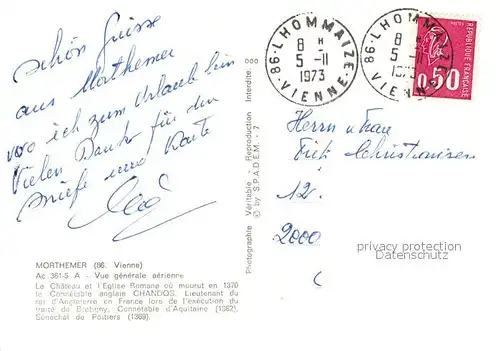 schön Grüsse
aus Morthemer
wo ich zum Urlaub bin
Vielen Dank für den
Briefe und Karte
MORTHEMER (86. Vienne)
Ac. 361-5 A - Vue générale aérienne
Le Château et l'Eglise Romane où mourut en 1370
le Connétable anglais CHANDOS, Lieutenant du
roi d'Angleterre en France lors de l'exécution du
traité de Brétigny, Connétable d'Aquitaine (1362),
Sénéchal de Poitiers (1369).
Photographie Véritable - Reproduction Interdite
© by S.P.A.D.E.M. - 7
86 - LHOMMAIZE
8 H
5 - 11
1973
VIENNE
86 - LHOMMAIZE
8 H
5 - 11
1973
VIENNE
REPUBLIQUE FRANÇAISE
0,50
Herrn u Frau
12.
2000
privacy protection
watermark